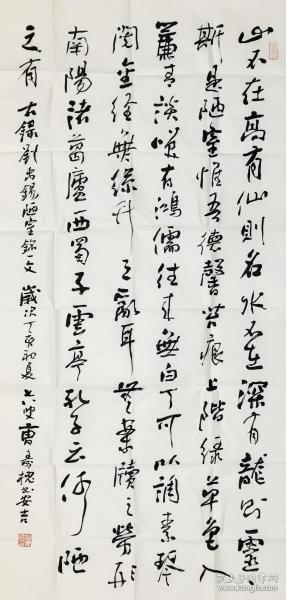 山不在高有仙則名水不在深有龍則靈
斯是陋室惟吾德馨苔痕上階綠草色入
簾青談笑有鴻儒往来無白丁可以調素琴
閲金经無絲竹之亂耳無案牘之勞形
南陽諸葛廬西蜀子雲亭孔子云何陋
之有 右錄劉禹錫陋室銘一文 歲次丁亥初夏 曹壽槐 安吉